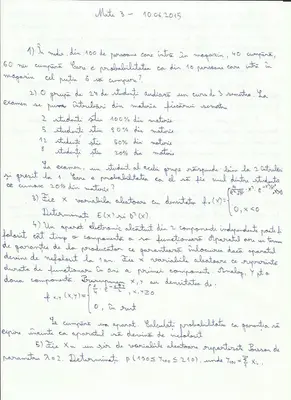 Mate 3 - 10.06.2015
1) În medie, din 100 de persoane care intră în magazin, 40 cumpără,
60 nu cumpără. Care e probabilitatea ca din 10 persoane care intră în
magazin cel puțin 6 să cumpere?
2) O grupă de 27 de studenți studiază un curs de 3 semestre. La
examen se pune întrebări din materia fiecărui semestru
2 studenți știu 100% din materie
5 studenți știu 80% din materie
12 studenți știu 50% din materie
8 studenți știu 20% din materie
La examen, un student al acelei grupe răspunde bine la 2 întrebări
și greșit la 1. Care e probabilitatea ca el să fie unul dintre studenții
ce cunosc 20% din materie?
3) Fie X variabila aleatoare cu densitate f_X(x) =
0, x<0
Determinați E(X) și D²(X)
4) Un aparat electronic alcătuit din 2 componente independente poate fi
folosit cât timp o componentă a sa funcționează. Aparatul are un timp
de garanție de la producător ce garantează înlocuirea dacă aparatul
devine de nefolosit la 1 an. Fie X variabila aleatoare ce reprezintă
durata de funcționare în ani a primei componente. Analog, Y pt a
doua componentă. Presupunem X, Y au densitatea de:
f_{X,Y}(x,y) = x,y≥0
0, în rest
Se cumpără un aparat. Calculați probabilitatea ca garanția să
expire înainte ca aparatul să devină de nefolosit
5) Fie X_n un șir de variabile aleatoare repartizate Poisson de
parametru λ=2. Determinați P(190≤ Y_100 ≤210), unde Y_100 =